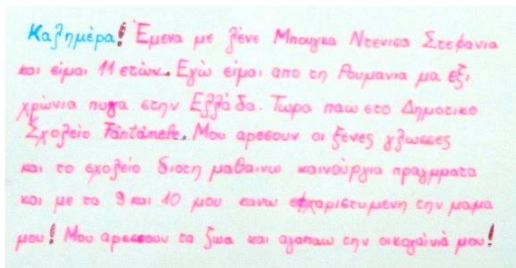 Καλημέρα! Έμενα με λένε Μπουγκα Ντενισα Στεφανια
και είμαι 11 ετών. Εγώ είμαι απο τη Ρουμανια μα εξι
χρώνια πηγα στην Ελλάδα. Τωρα παω στο Δημοτικο
Σχολείο Fântânele. Μου αρεσουν οι ξενες γλωσσες
και το σχολείο διοτη μαθαινω καινούργια πραγματα
και με τα 9 και 10 μου κανω εφχαριστυμενη την μαμα
μου! Μου αρεσουν τα ζωα και αγαπαω την οικογένιά μου!